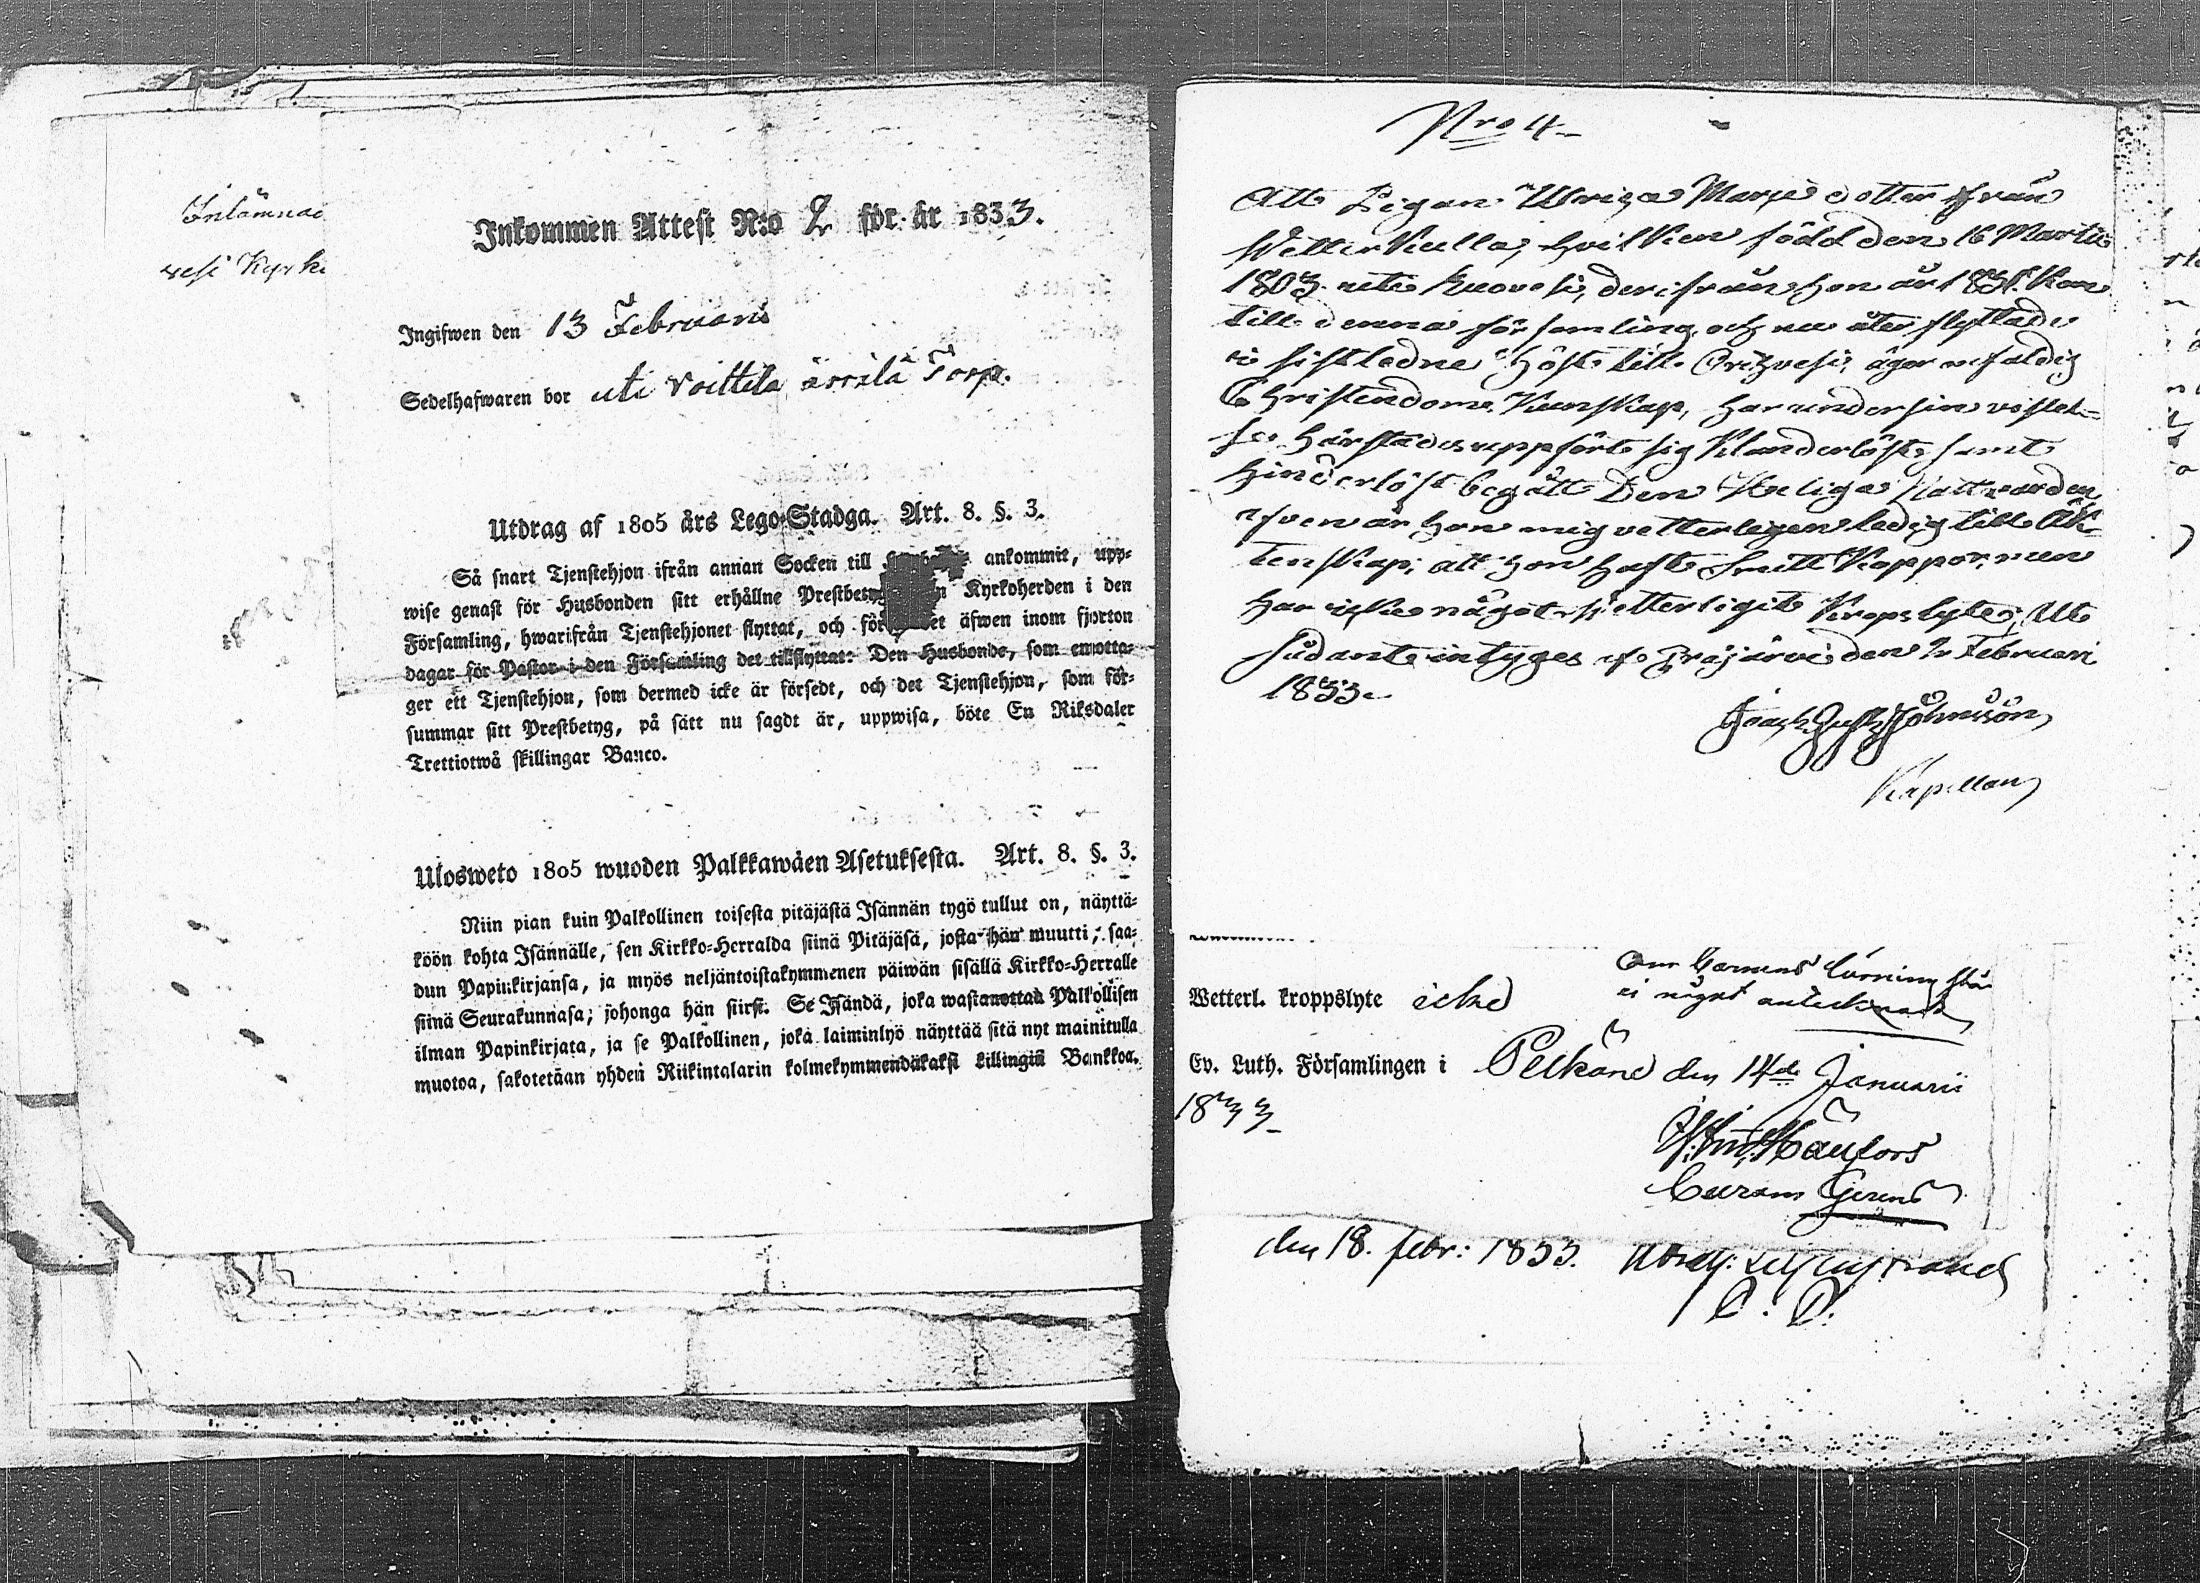 Inlämnad
vesi Kyrko
Inkommen Attest N:o 2 för år 1833.
Ingifwen den 13 Februarii
Sedelhafwaren bor uti Voittila Torp.
Utdrag af 1805 års Lego-Stadga. Art. 8. §. 3.
Så snart Tjenstehjon ifrån annan Socken till ankommit, upp-
wise genast för Husbonden sitt erhållne Prestbetyg Kyrkoherden i den
Församling, hwarifrån Tjenstehjonet flyttat, och äfwen inom fjorton
dagar för Pastor i den Församling det tillflyttat: Den Husbonde, som emotta-
ger ett Tjenstehjon, som dermed icke är försedt, och det Tjenstehjon, som för-
summar sitt Prestbetyg, på sätt nu sagdt är, uppwisa, böte En Riksdaler
Trettiotwå skillingar Banco.
Ulosweto 1805 wuoden Palkkawäen Asetuksesta. Art. 8. §. 3.
Niin pian kuin Palkollinen toisesta pitäjästä Isännän tygö tullut on, näyttä-
köön kohta Isännälle, sen Kirkko-Herralda siinä Pitäjäsä, josta hän muutti, saa-
dun Papinkirjansa, ja myös neljäntoistakymmenen päiwän sisällä Kirkko-Herralle
siinä Seurakunnasa, johonga hän siirst. Se Isändä, joka wastanottaa Palkollisen
ilman Papinkirjata, ja se Palkollinen, joka laiminlyö näyttää sitä nyt mainitulla
muotoa, sakotetaan yhden Riikintalarin kolmekymmendäkaksi killingin Bankkoa.
Nro 4
Att Pigan Ulrica Marje dotter ifrån
Wetterkulla, hvilken född den 16 Martii
1803 uti Ruovesi, derifrån hon år 1831 kom
till denna församling och nu åter flyttade
i sistledne höst till Orihvesi, äger
Christendoms Kunskap, har under sin vistel-
se härstädes uppfört sig klanderlöst, samt
hinderlöst begått Den Heliga Nattvarden,
äfven är hon mig vetterligen ledig till Äk-
tenskap; att hon haft Koppor, men
har icke något vetterligit Kropslyte;
sådant intygas af Eräjärvi den 2 Februari
1833.
Johnsson,
Kapellan
Wetterl. kroppslyte icke
Om barnens står
ei något antecknadt
Ev. Luth. Församlingen i Pelkäne den 14de Januarii
1833
Curam Gerens
den 18. febr: 1833.